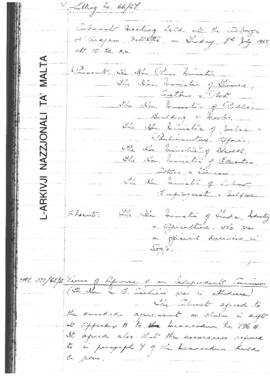 L-ARKIVJI NAZZJONALI TA' MALTA
Sitting No. 66/67
Cabinet meeting held at the Auberge
d'Aragon, Valletta, on Friday, 7th July 1967
at 10.00 a.m.
Present: The Hon. Prime Minister
The Hon. Minister of Finance,
Customs & Port
The Hon. Minister of Public
Building & Works
The Hon. Minister of Justice &
Parliamentary Affairs
The Hon. Minister of Health
The Hon. Minister of Education,
Culture & Tourism
The Hon. Minister of Labour,
Employment & Welfare
Absent: The Hon. Minister of Trade, Industry
& Agriculture, who was
abroad
Terms of Reference of an Independent Commission
was in attendance
The Cabinet agreed to
the amended agreement as shown in draft
at Appendix A to the memorandum No. 196 A.
It agreed also that the assurances referred
to in paragraph 4 of the memorandum should
be given.